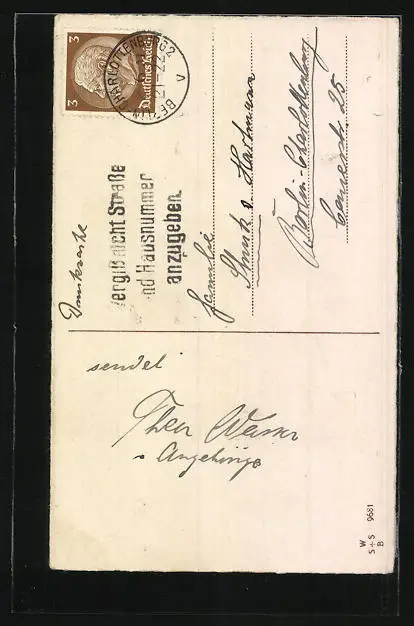 Drucksache
3 Deutsches Reich 3
BERLIN-CHARLOTTENBURG 2
Vergiß nicht Straße
und Hausnummer
anzugeben.
Familie
Hartmann
Berlin-Charlottenburg
25
sendet
Theo
u Angehörige
W
S+S 9681
B